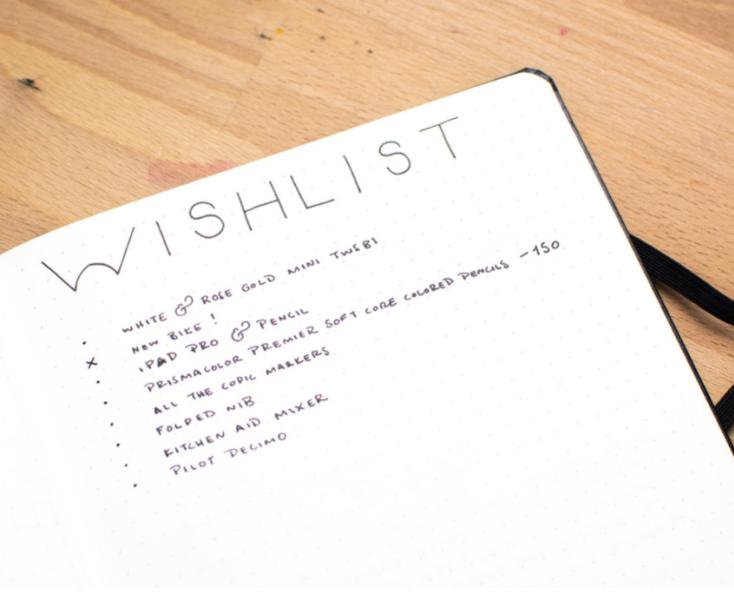 WISHLIST
· WHITE & ROSE GOLD MINI TWSBI
x NEW BIKE !
· IPAD PRO & PENCIL
· PRISMACOLOR PREMIER SOFT CORE COLORED PENCILS - 150
· ALL THE COPIC MARKERS
· FOLDED NIB
· KITCHEN AID MIXER
· PILOT DECIMO